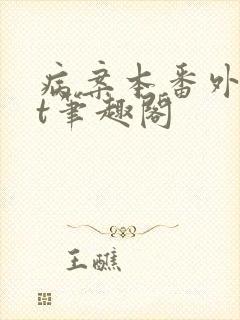 病案本番外
t笔趣阁
王醮